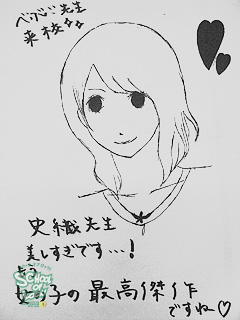 先生
来校
史織先生
美しすぎです…!
女の子の最高傑作
ですね♡